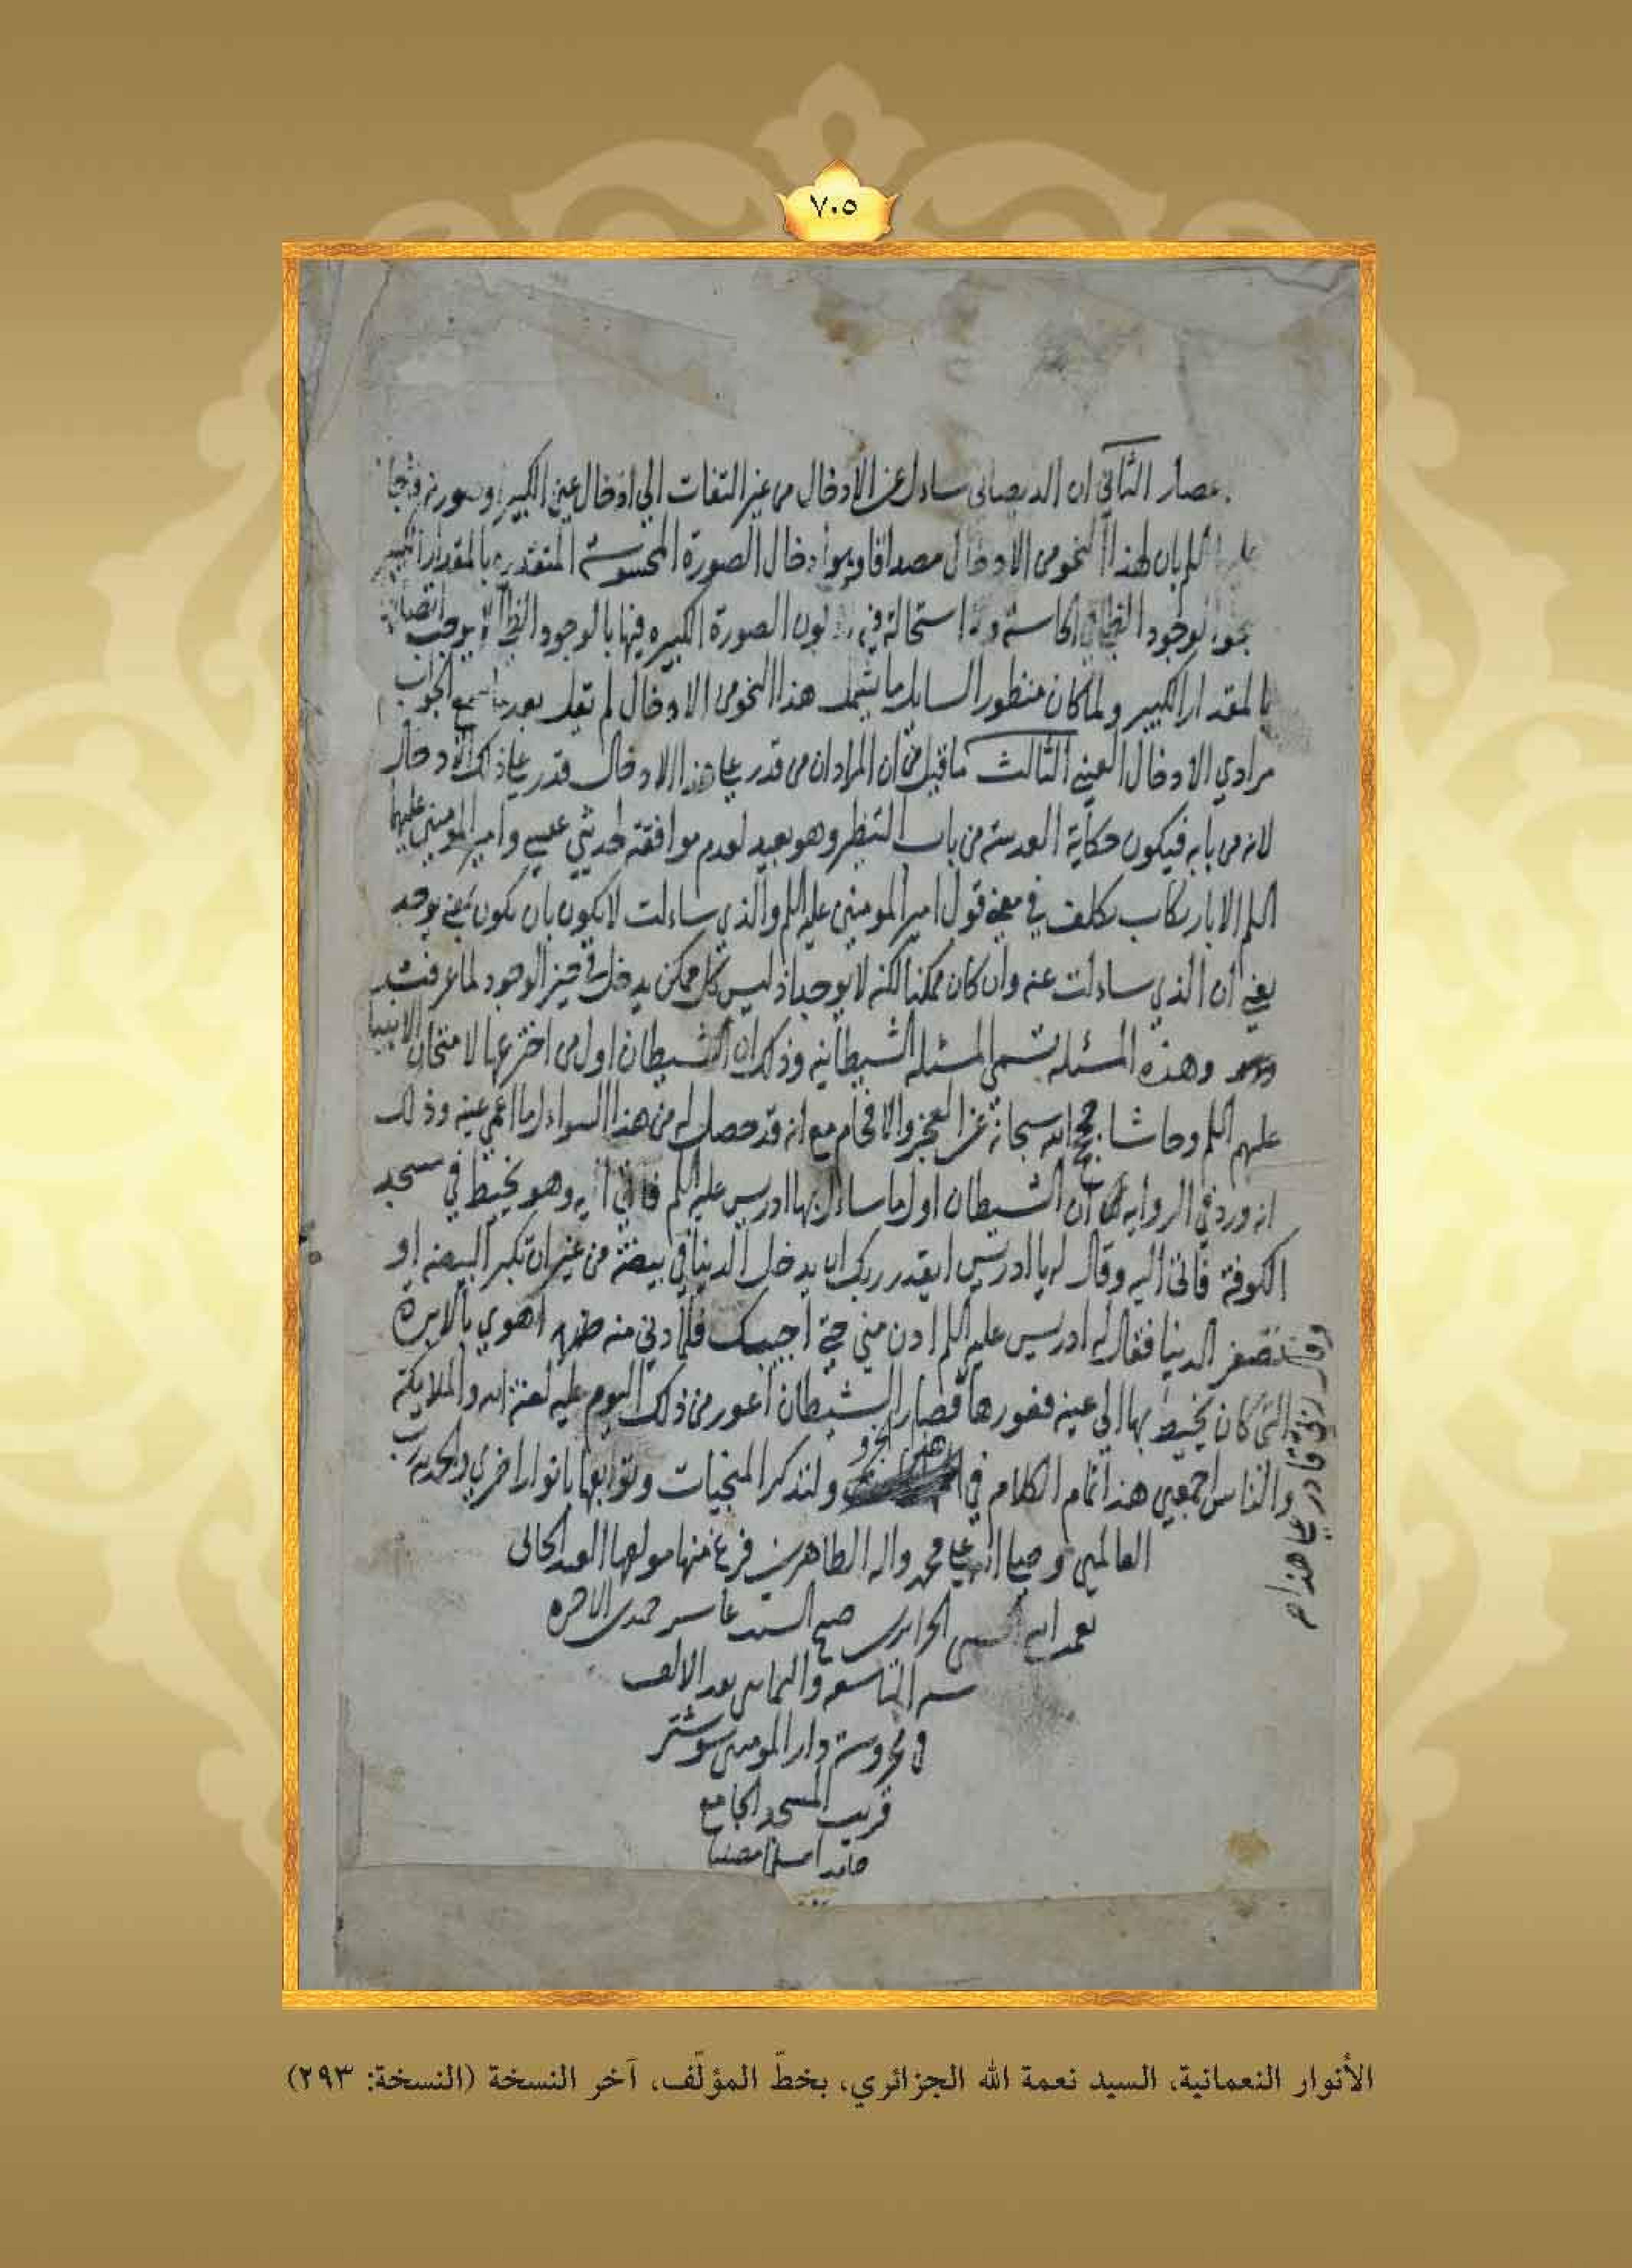 ٧٠٥
الثاني ان الديصاني ساءل عن الادخال من غير التفات الي ادخال عين الكبير
بان لهذا النحو من الادخال مصداقا وهو ادخال الصورة المحسوسة المتقدره بالمقدار الكبير
بنحو الوجود الظلي استحالة في الصورة الكبيره فيها بالوجود يوجب
بالمقدار الكبير ولما كان منظور السايل ما يشمل هذا النحو من الادخال لم يقل بعد الجواب
مرادي الادخال العيني الثالث ما قيل من ان المراد ان من قدر علي هذا الادخال قدر علي ذلك الادخال
لانه من بابه فيكون حكاية العدسة من باب التنظير وهو بعيد لعدم موافقته لحديثي عيسي وامير المومنين عليهما
السلم الا بارتكاب تكلف في معني قول امير المومنين عليه السلم والذي ساءلت لا يكون بان يكون بمعني يوجد
يعني ان الذي ساءلت عنه وان كان ممكنا لكنه لا يوجد اذ ليس كل ممكن يدخل في حيز الوجود لما عرفت
وهذه المسئله تسمي المسئله الشيطانيه وذلك ان الشيطان اول من اخترعها لامتحان الانبيا
عليهم السلم وحاشا حجج الله سبحانه عن العجز والافحام مع انه قد حصل له من هذا السواءل ما اعمي عينه وذلك
انه ورد في الروايه ان الشيطان اول ما ساءل بها ادريس عليه السلم فاتي اليه وهو يخيط في مسجد
الكوفة فاتي اليه وقال له يا ادريس ايقدر ربك ان يدخل الدنيا في بيضة من غير ان تكبر البيضه او
تصغر الدنيا فقال له ادريس عليه السلم ادن مني حتي اجيبك فلما دني منه اهوي بالابرة
التي كان يخيط بها الي عينه ففورها فصار الشيطان اعور من ذلك اليوم عليه لعنة الله والملايكة
والناس اجمعين هذا تمام الكلام في هذا الجزو ولنذكر المنجيات وتوابعها بانوار اخري والحمد لله رب
العالمين وصلي الله علي محمد واله الطاهرين فرغ منها مولفها العبد الجاني
نعمة الله الحسيني الجزايري صبح السبت عاشر جمدي الاخره
سنه التاسعه والثمانين بعد الالف
في محروسة دار المومنين شوشتر
قريب المسجد الجامع
حامدا مصليا
وقال ربي قادر علي هذا صح
الأنوار النعمانية، السيد نعمة الله الجزائري، بخطّ المؤلّف، آخر النسخة (النسخة: ٢٩٣)